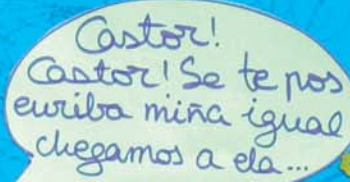 Castor!
Castor! Se te pos
enriba miña igual
chegamos a ela...